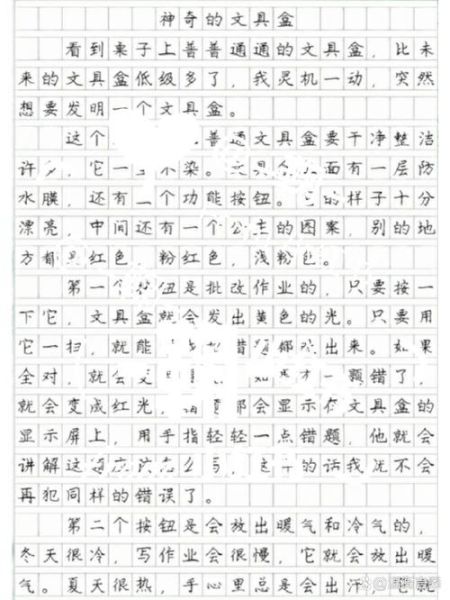 神奇的文具盒
看到桌子上普普通通的文具盒，比未
来的文具盒低级多了，我灵机一动，突然
想要发明一个文具盒。
这个普通文具盒要干净整洁
许多，它一不染。文具面有一层防
水膜，还有二个功能按钮。它的样子十分
漂亮，中间还有一个公主的图案，别的地
方都是红色，粉红色，浅粉色。
第一个按钮是批改作业的，只要按一
下它，文具盒就会发出黄色的光。只要用
它一扫，就能错都出来。如果
全对，就会变一颗错了，
就会变成红光，都会显示在文具盒的
显示屏上，用手指轻轻一点错题，他就会
讲解这题应该怎么写，这样的话我就不会
再犯同样的错误了。
第二个按钮是会放出暖气和冷气的，
冬天很冷，写作业会很慢，它就会放出暖
气。夏天很热，手心里总是会出汗，它就